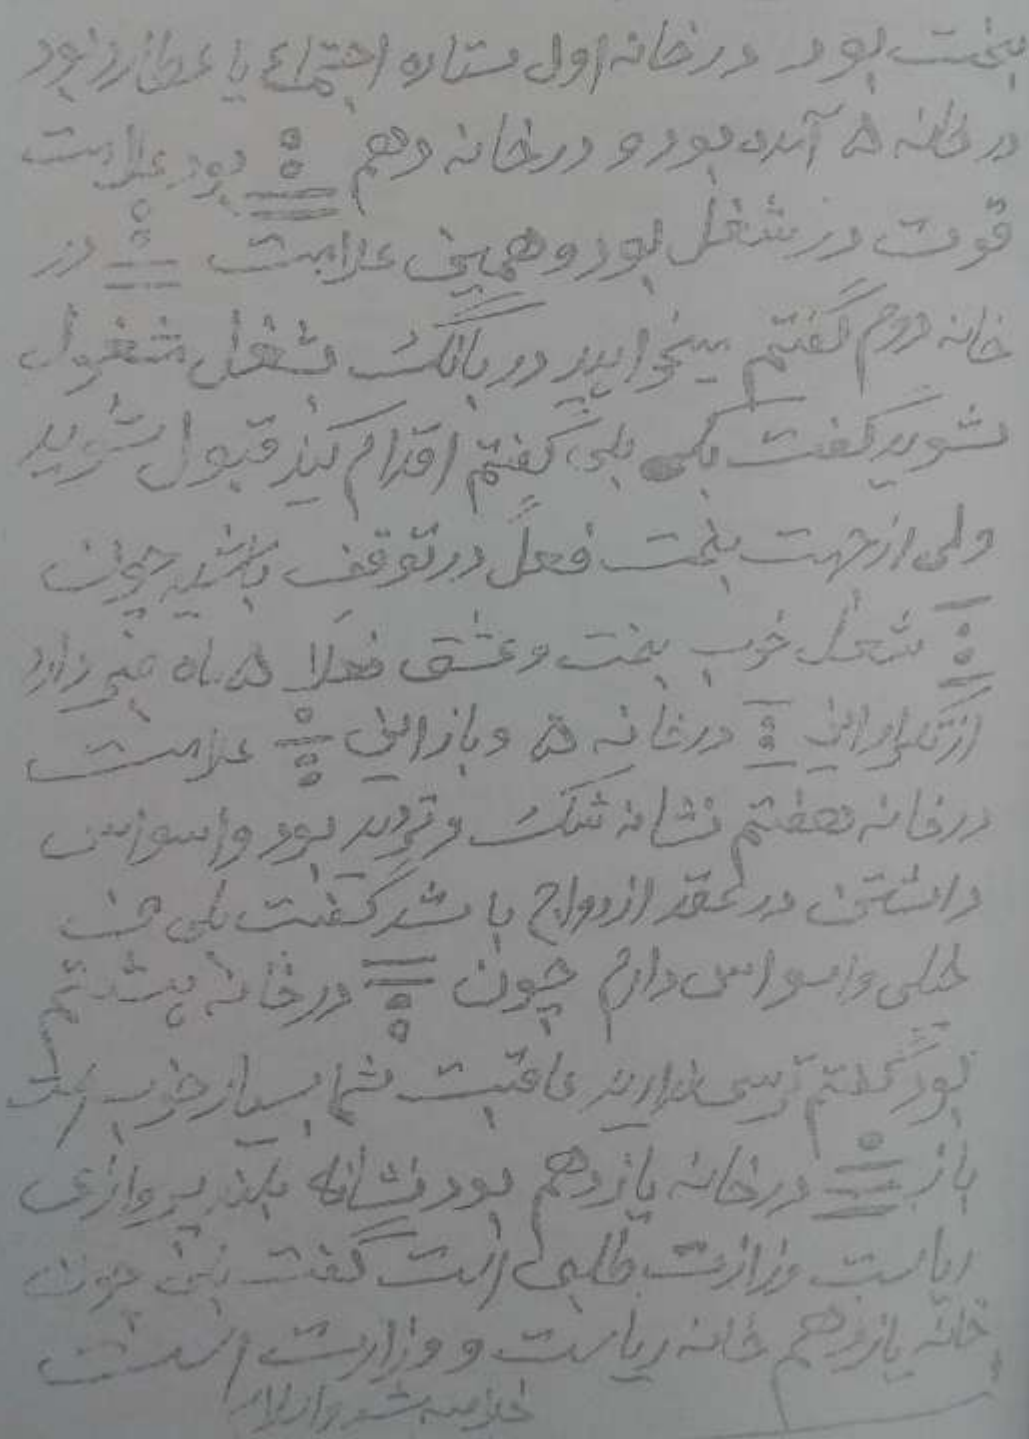 بخت بود در خانه اول ستاره اجتماع یا عطارد بود
در خانه ۵ آمده بود و در خانه دهم بود علامت
قوت در شغل بود و همچنین علامت در
خانه دوم گفتم میخواهید در بانک بشغل مشغول
شوید گفت بلی گفتم اقدام کنید قبول شوید
ولی از جهت بخت فعلا در توقف باشید چون
شغل خوب بخت و عشق فعلا ۵ ماه
از تکرار این در خانه ۵ و باز این علامت
در خانه هفتم نشانه شک و تردید بود واسواس
داشتن در عقد ازدواج باشد گفت بلی من
خیلی واسواس دارم چون در خانه هشتم
بود گفتم ترسی ندارید عاقبت شما بسیار خوب است
باز در خانه یازدهم بود نشانه بلند پروازی
ریاست وزارت طلبی است گفت بلی چون
خانه یازدهم خانه ریاست و وزارت است
خلاصه شد